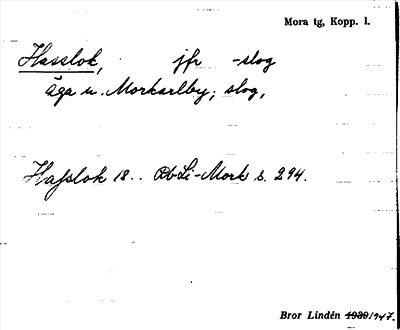 Mora tg, Kopp. l.
Hasslok, jfr -slog
äga u. Morkarlby; slog,
Hafslok 18.. RbLi-Mork s. 294.
Bror Lindén 1939 1947.